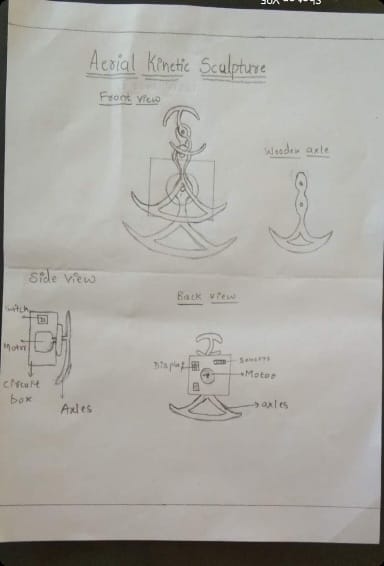 Aerial Kinetic Sculpture
Front view
Wooden axle
Side view
Switch
Motor
Circuit
box
Axles
Back view
Display
Sensors
Motor
axles